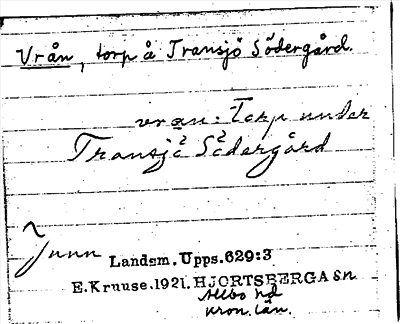 Vrån, torp å Transjö Södergård.
vran: Torp under
Transjö Södergård
Landsm. Upps. 629:3
E. Kruuse. 1921. HJORTSBERGA Sn.
Allbo hd
Kron. län.